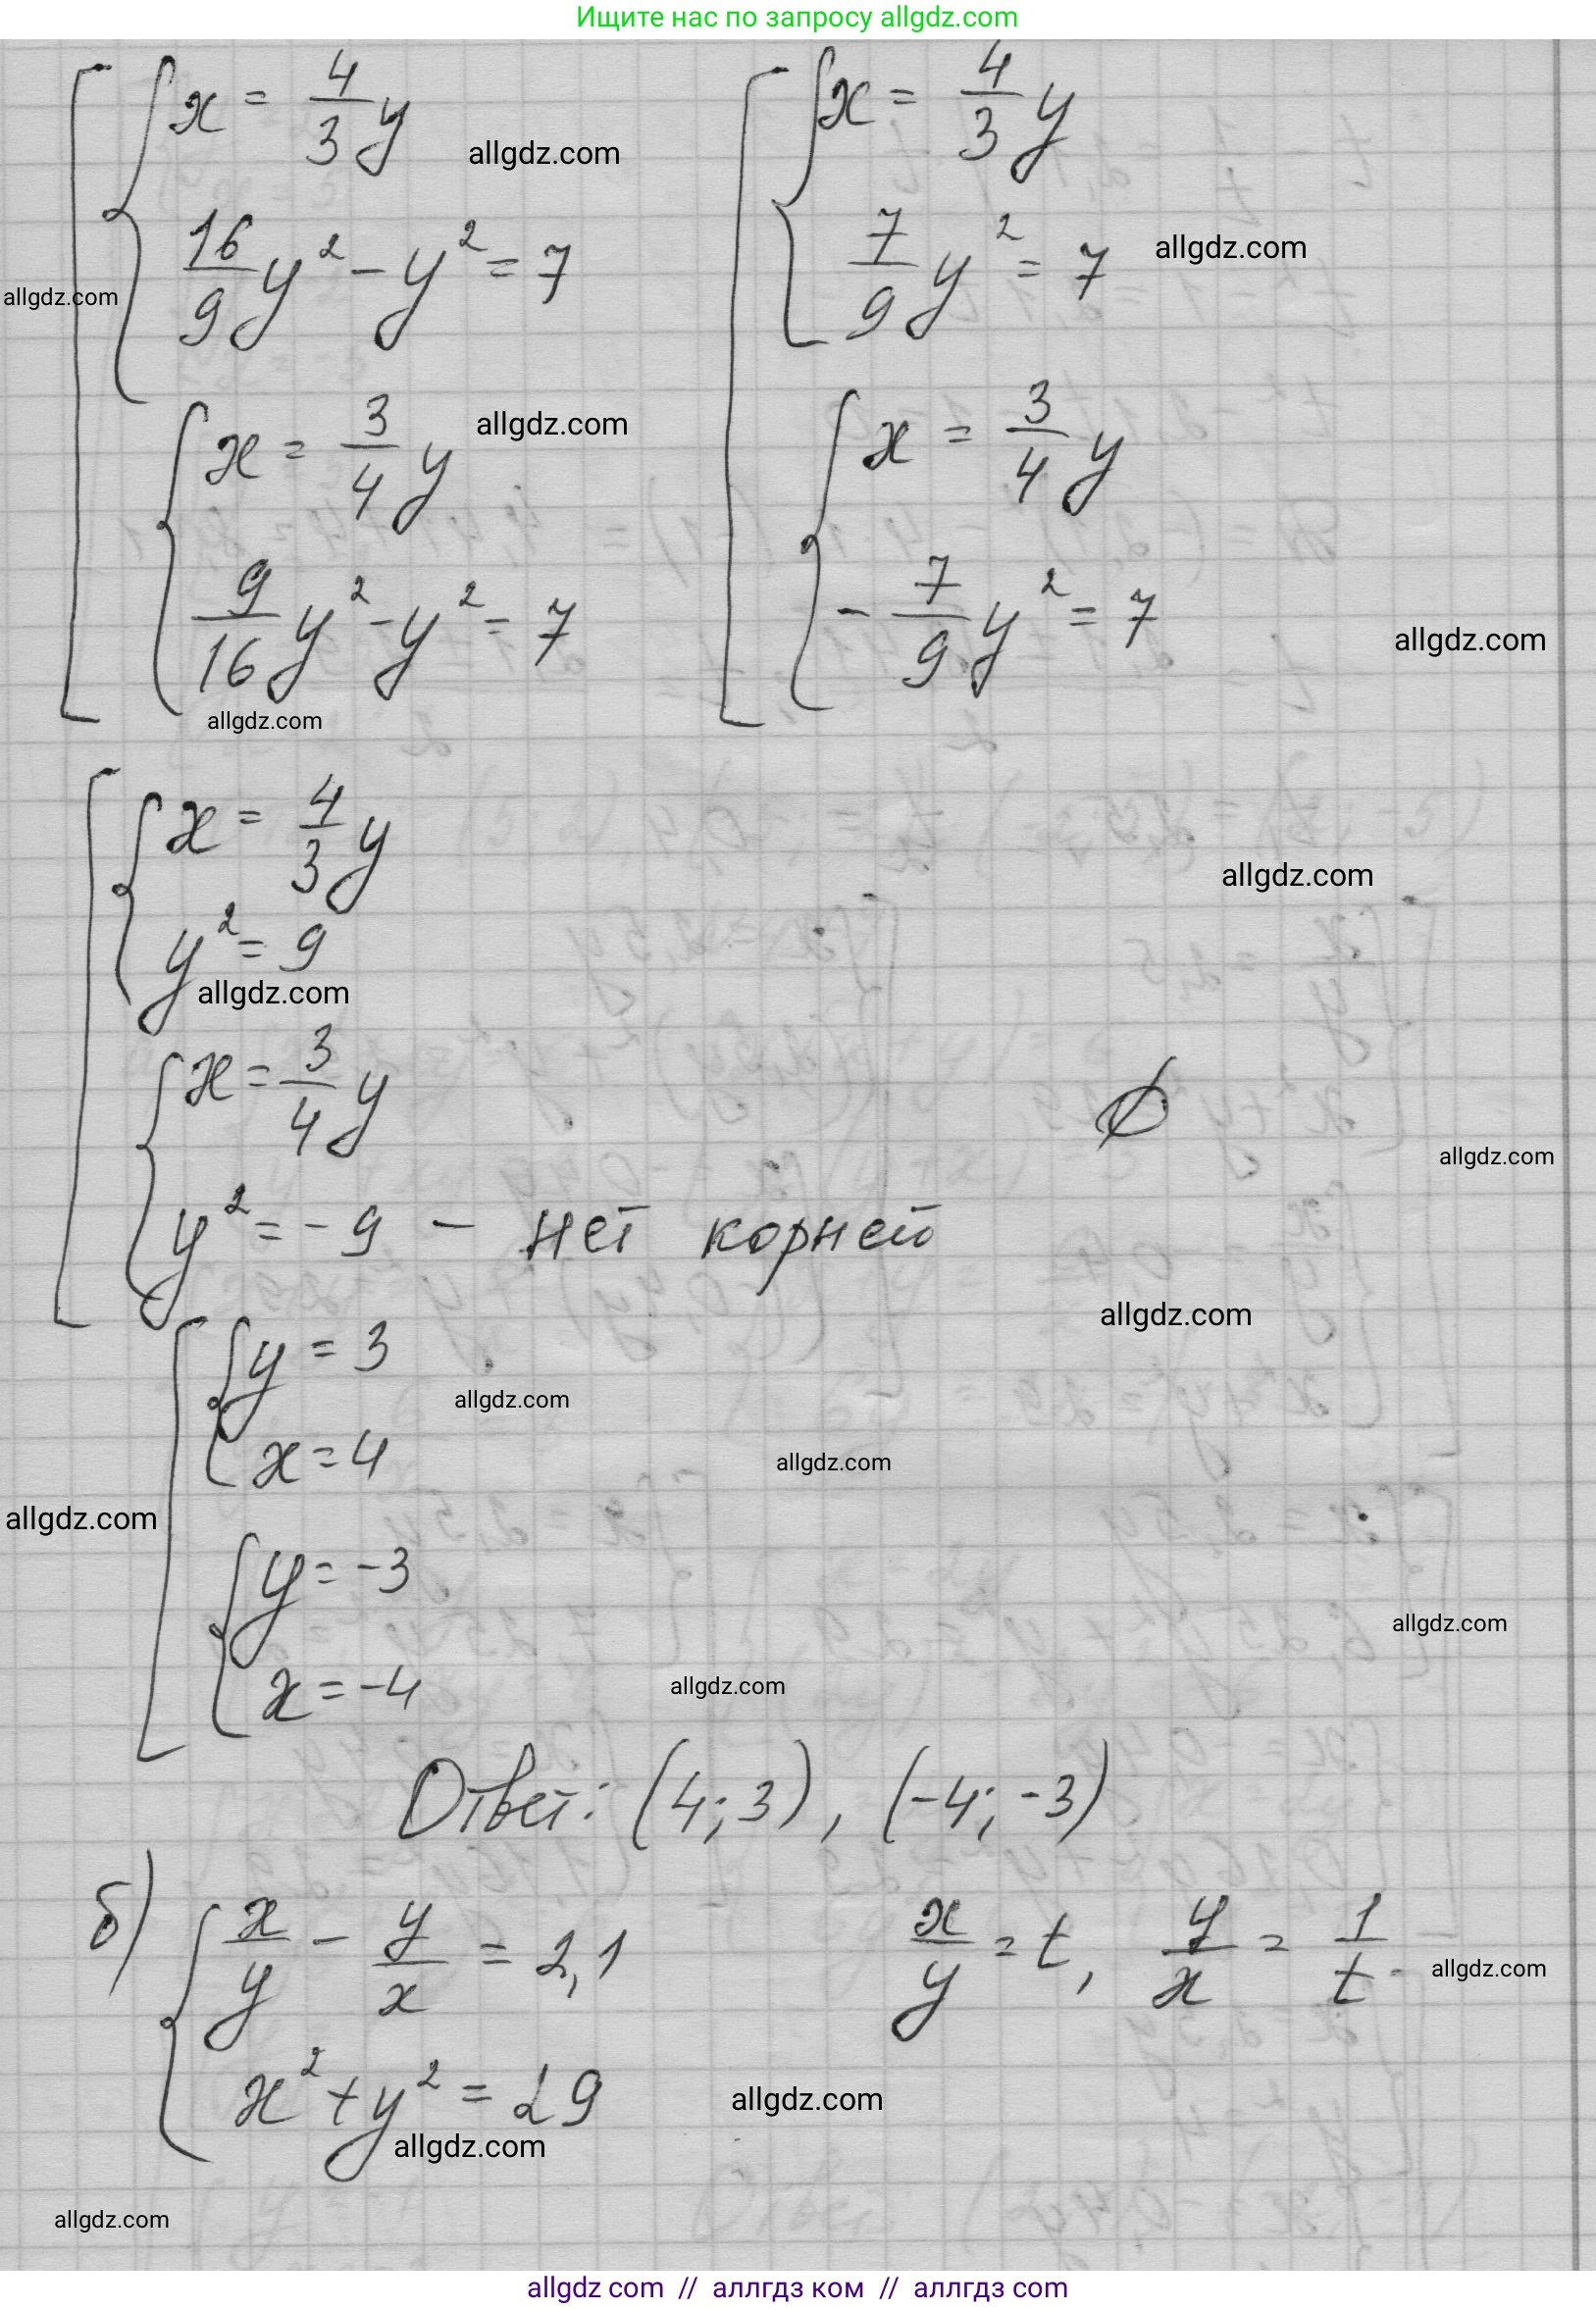 Ищите нас по запросу allgdz.com
x = 4/3 y
allgdz.com
16/9 y² - y² = 7
allgdz.com
x = 3/4 y
allgdz.com
9/16 y² - y² = 7
allgdz.com
x = 4/3 y
7/9 y² = 7
allgdz.com
x = 3/4 y
- 7/9 y² = 7
allgdz.com
x = 4/3 y
allgdz.com
y² = 9
allgdz.com
x = 3/4 y
∅
allgdz.com
y² = -9 - нет корней
allgdz.com
y = 3
allgdz.com
x = 4
allgdz.com
allgdz.com
y = -3
allgdz.com
x = -4
allgdz.com
Ответ: (4; 3), (-4; -3)
б) x/y - y/x = 2,1
x/y = t, y/x = 1/t
allgdz.com
x² + y² = 29
allgdz.com
allgdz.com
allgdz.com
allgdz com // аллгдз ком // аллгдз com